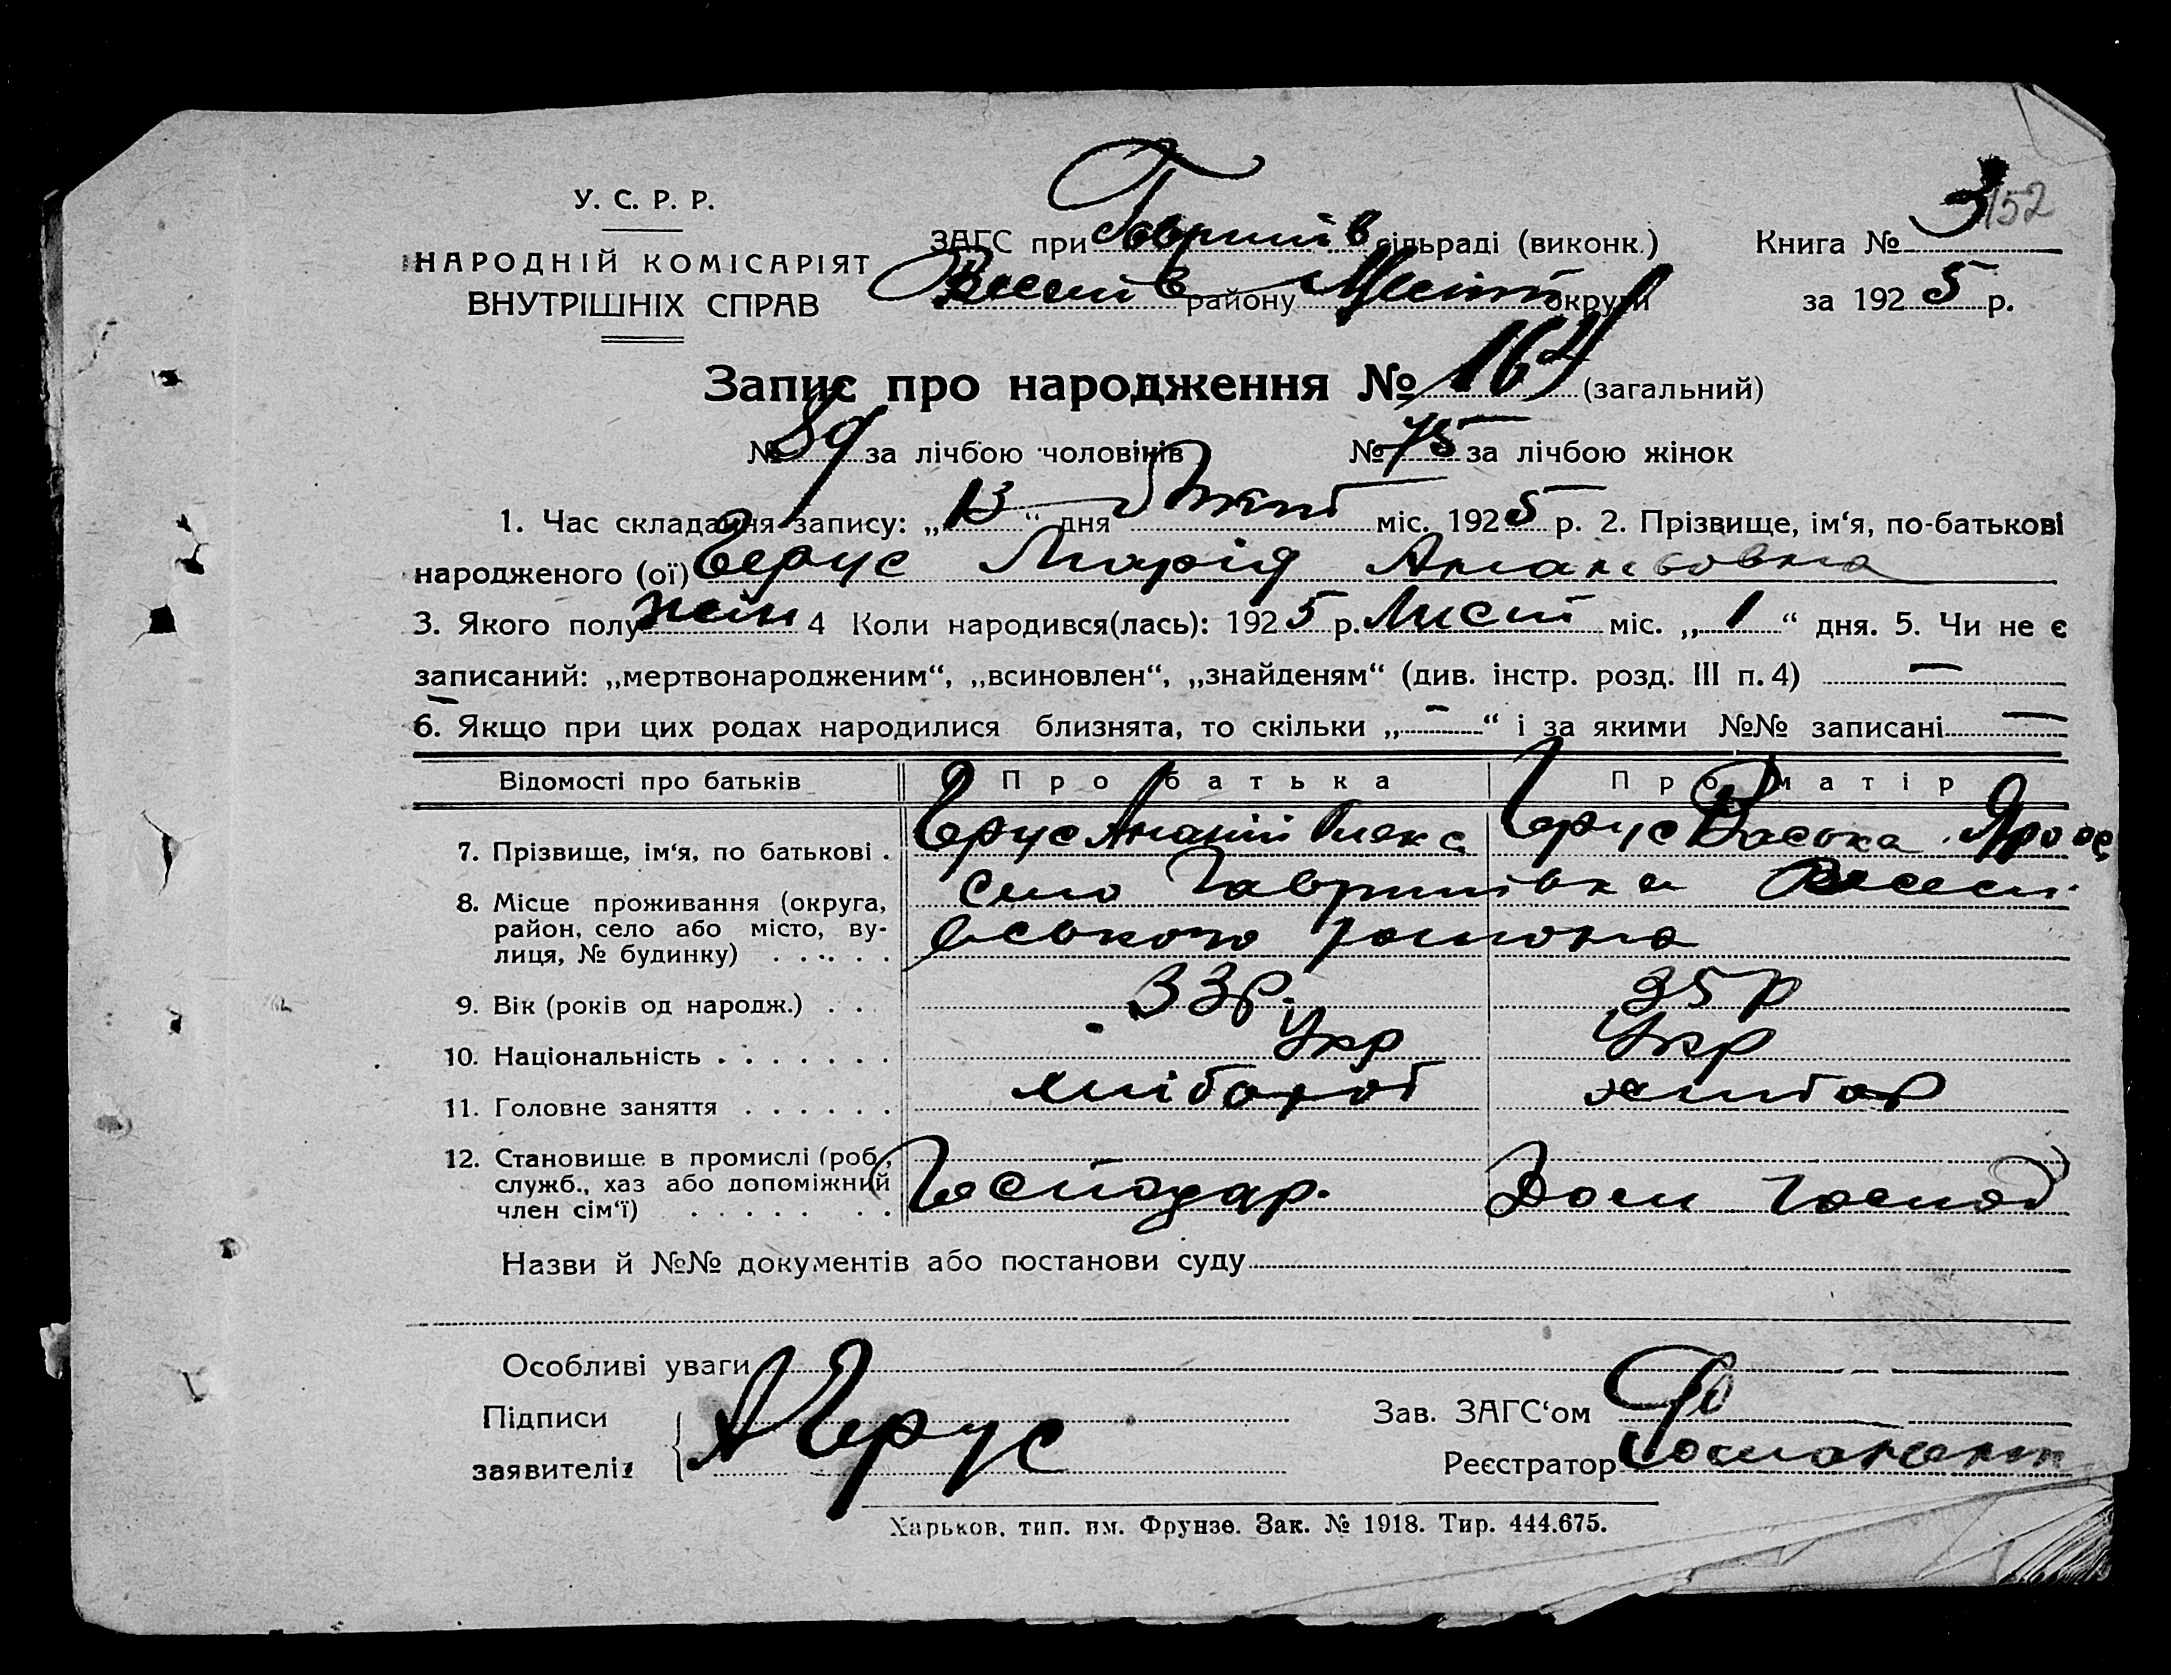 152
У. С. Р. Р.
НАРОДНІЙ КОМІСАРІЯТ
ВНУТРІШНІХ СПРАВ
ЗАГС при Гавришів сільраді (виконк.)
району округи
Книга № 3
за 1925 р.
Запис про народження № 164 (загальний)
№ 89 за лічбою чоловіків № 75 за лічбою жінок
1. Час складання запису: „13“ дня міс. 1925 р. 2. Прізвище, ім‘я, по-батькові
народженого (ої) Герус Марія
3. Якого полу жін 4 Коли народився(лась): 1925 р. Лист міс. „1“ дня. 5. Чи не є
записаний: „мертвонародженим“, „всиновлен“, „знайденям“ (див. інстр. розд. III п. 4) —
6. Якщо при цих родах народилися близнята, то скільки „—“ і за якими №№ записані —
Відомості про батьків Про батька Про матір
7. Прізвище, ім‘я, по батькові . Герус Ананій Олекс Герус Васька
8. Місце проживання (округа, село Гавришівка
район, село або місто, ву- вського району
лиця, № будинку) . . . . .
9. Вік (років од народж.) . . 33р. 35р
10. Національність . . . . . . . Укр Укр
11. Головне заняття . . . . . . хлібороб хлібор
12. Становище в промислі (роб.,
служб., хаз або допоміжний Господар. Дом господ
член сім‘ї) . . . . . . .
Назви й №№ документів або постанови суду
Особливі уваги
Підписи
заявителів А Герус
Зав. ЗАГС‘ом
Реєстратор
Харьков, тип. им. Фрунзе. Зак. № 1918. Тир. 444.675.